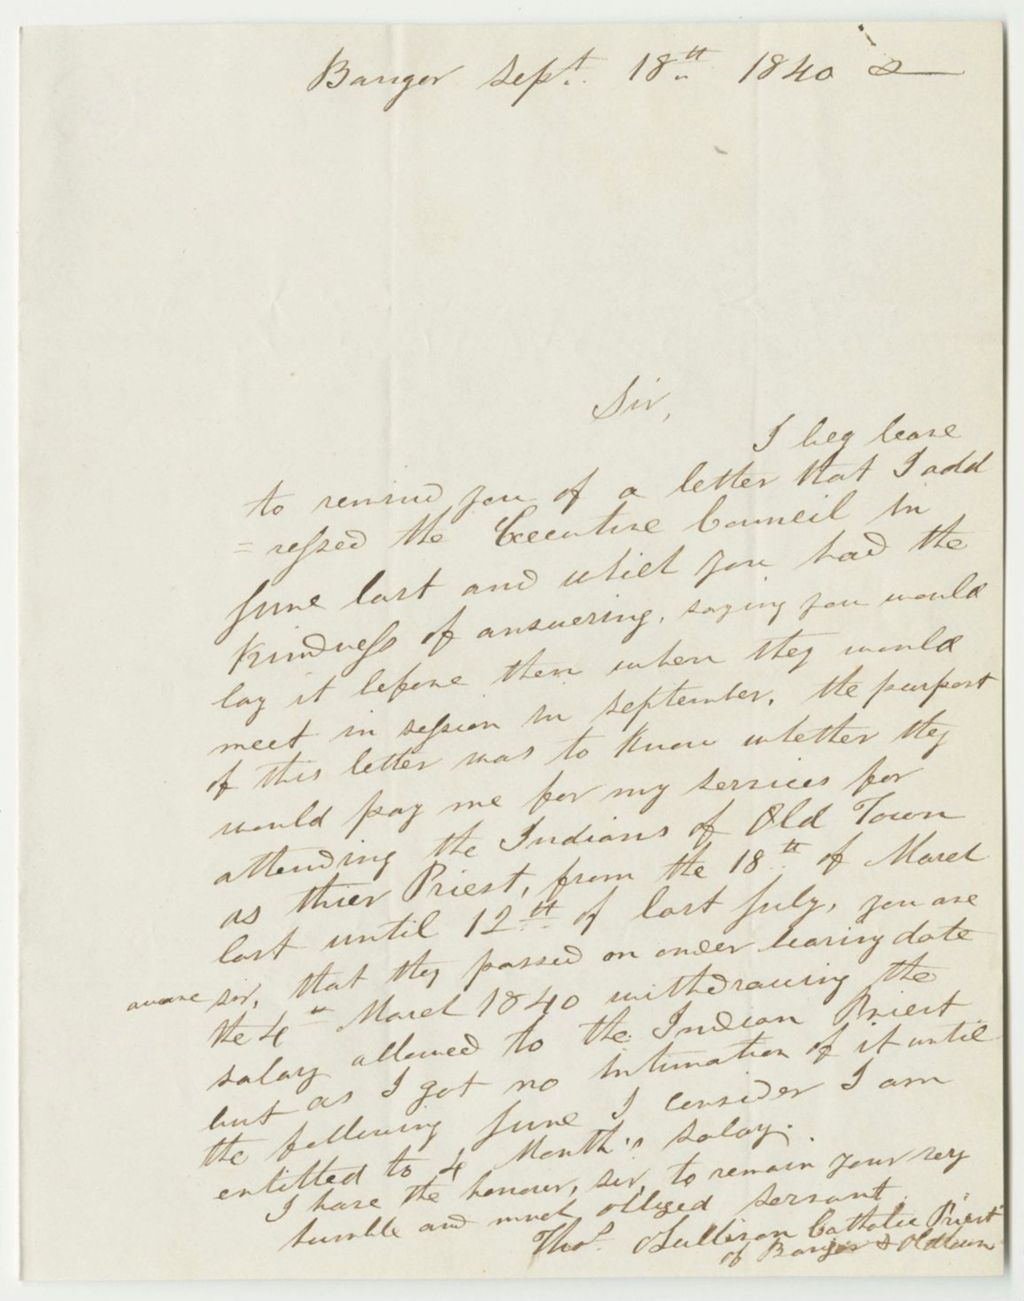 Bangor Sept. 18th 1840
Sir,
I beg leave
to remind you of a letter that I add
= ressed the Executive Council in
June last and which you had the
Kindness of answering, saying you would
lay it before them when they would
meet in session in September. the purport
of this letter was to know whether they
would pay me for my services for
attending the Indians of Old Town
as thier Priest, from the 18th of March
last until 12th of last July, you are
aware sir, that they passed an order bearing date
the 4th March 1840 withdrawing the
salary allowed to the Indian Priest
but as I got no intimation of it until
the following June I consider I am
entitted to 4 Month's salary.
I have the honour, sir, to remain your very
humble and much obliged servant
Thos. OSullivan Catholic Priest
of Bangor & Oldtown